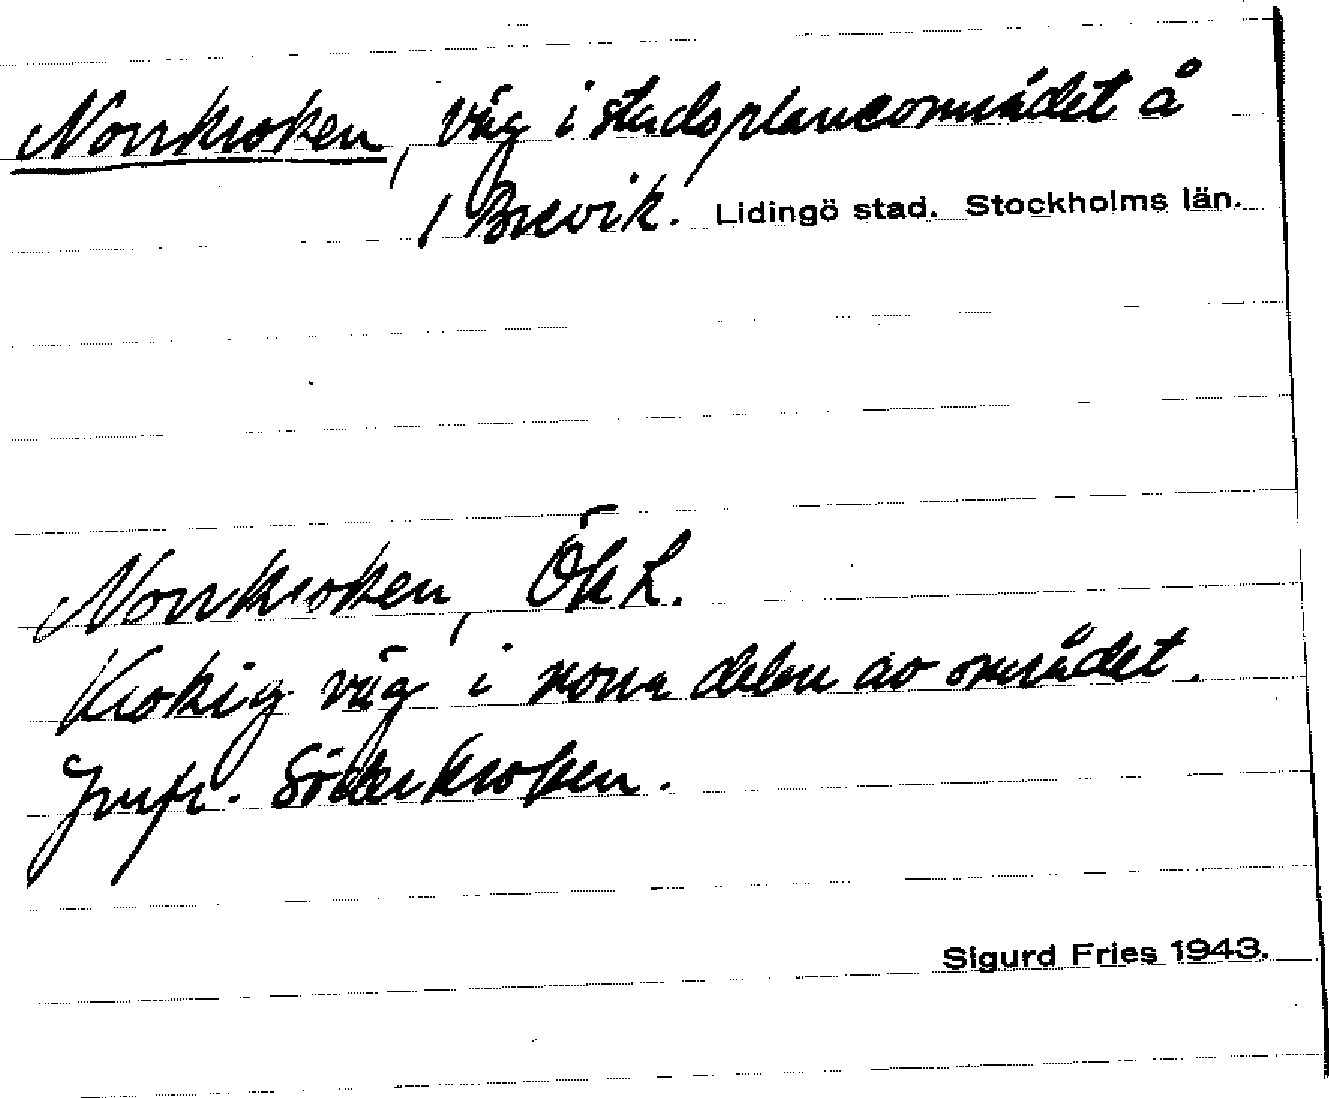 Norrkroken, väg i stadsplaneområdet å
/ Brevik. Lidingö stad. Stockholms län.
Norrkroken, Ök L.
Krokig väg i norra delen av området.
Jmfr. Söderkroken.
Sigurd Fries 1943.